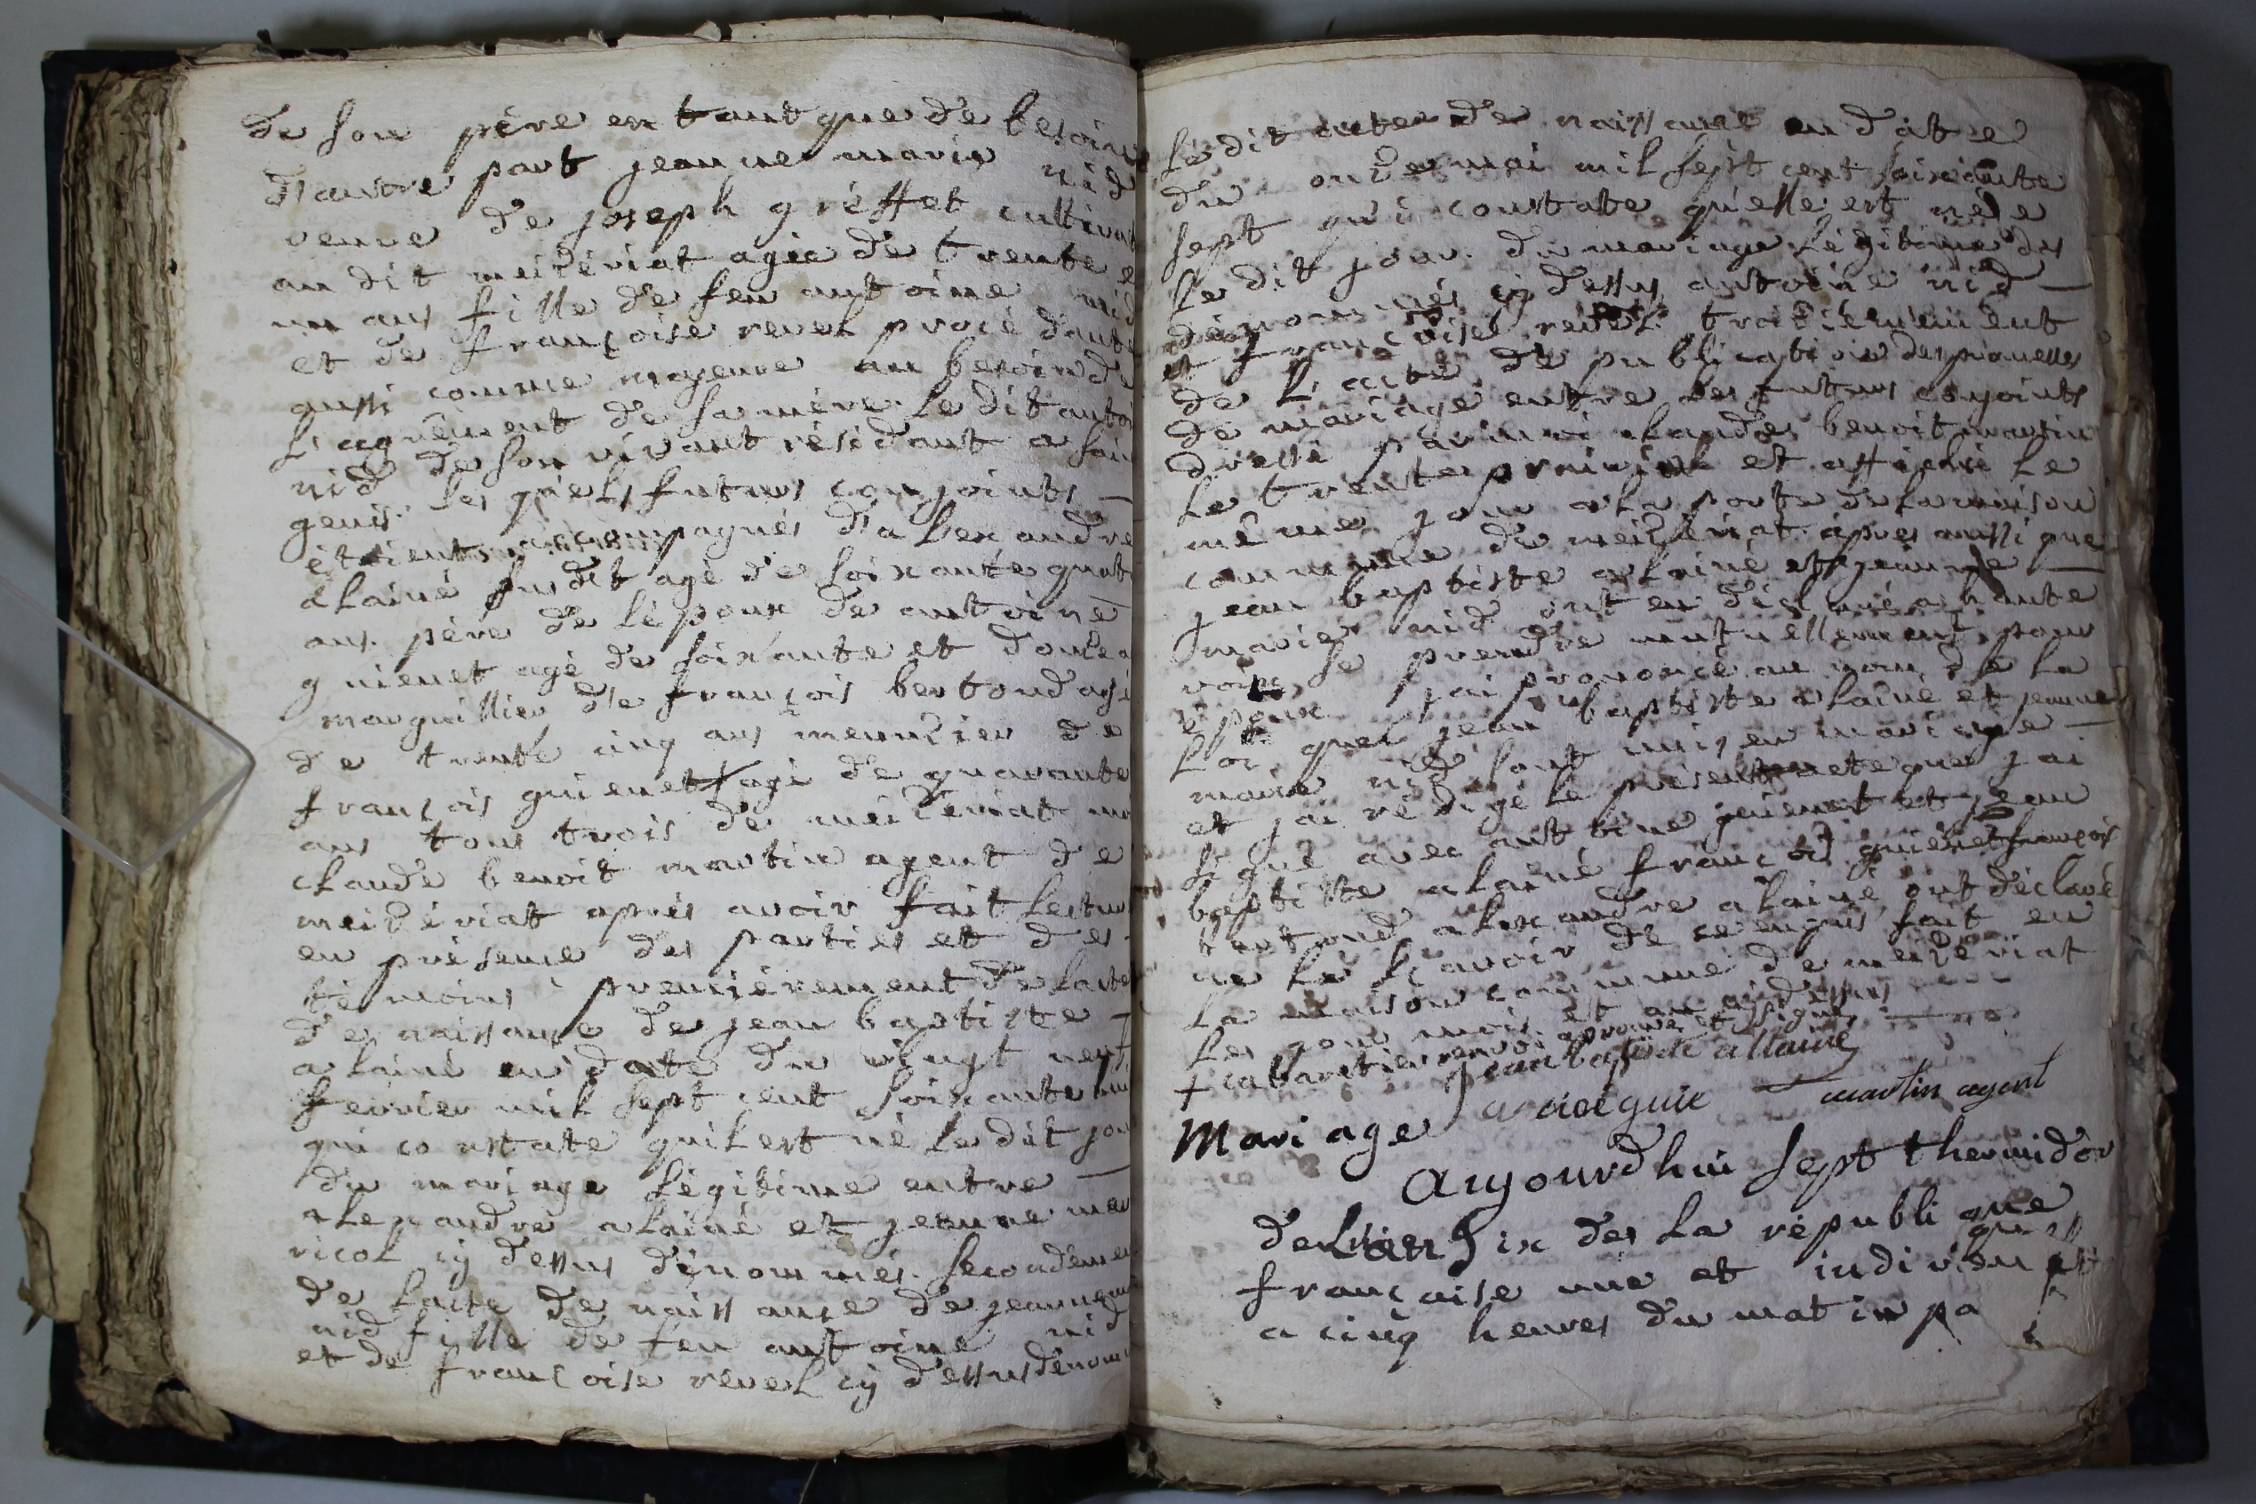 de son père en tant que de besoin
d'autre part jeanne marie nid
veuve de joseph gréffet cultivat
au dit meizériat agée de trente e
un ans fille de feu antoine nid
et de françoise revel procédante
aussi comme majeure au besoin de
l'agrément de sa mère le dit anto
nid de son vivant résidant a sain
genis. les quels futurs conjoints —
étoient accompagnés d'alexandre
alainé susdit agé de soixante quat
ans père de lépoux de antoine
guienet agé de soixante et douze a
marguillier de françois bertoud agé
de trente cinq ans menuizier de
françois guienet + agé de quarante
ans tous trois de meizériat moi
claude benoit martin agent de
meizériat après avoir fait lectur
en présence des parties et des
témoins premièrement de lacte
de naissance de jean baptiste —
alainé en date du vingt neuf
fevrier mil sept cent soixante hui
qui constate quil est né le dit jou
du mariage légitime entre —
alexandre alainé et jeanne mar
ricol cy dessus dénommés. secondemen
de lacte de naissance de jeanne mar
nid fille de feu antoine nid
et de françoise revel cy dessus dénom
le dit acte de naissance en date
du onze mai mil sept cent soixante
sept qui constate qu'elle est née
le dit jour du mariage légitime des
dénommés cy dessus antoine nid —
et françoise revel. troizièmement
de l'acte de publication des promesses
de mariage entre les futurs conjoints
dressé par moi claude benoit martin
le trente prairial et affiché le
même jour a la porte de la maison
commune de meizériat. apres aussi que
jean baptiste alainé et jeanne —
marie nid ont eu déclaré a haute
voix se prendre mutuellement pour
époux jai prononcé au nom de la
loi que jean baptiste alainé et jeanne
marie nid sont unis en mariage —
et jai rédigé le présent acte que jai
signé avec antoine guienet et jean
baptiste alainé françois guienet françois
bertoud alexandre alainé ont déclaré
ne le sçavoir de ce enquis fait en
la maison commune de meizériat
les jour mois et an cy dessus
+ cabaretier renvoi aprouvé et signé
jean baptiste allainé
martin agent
Mariage
aujourdhui sept thermidor
de lan six de la république
française une et indivisi
a cinq heures du matin pa